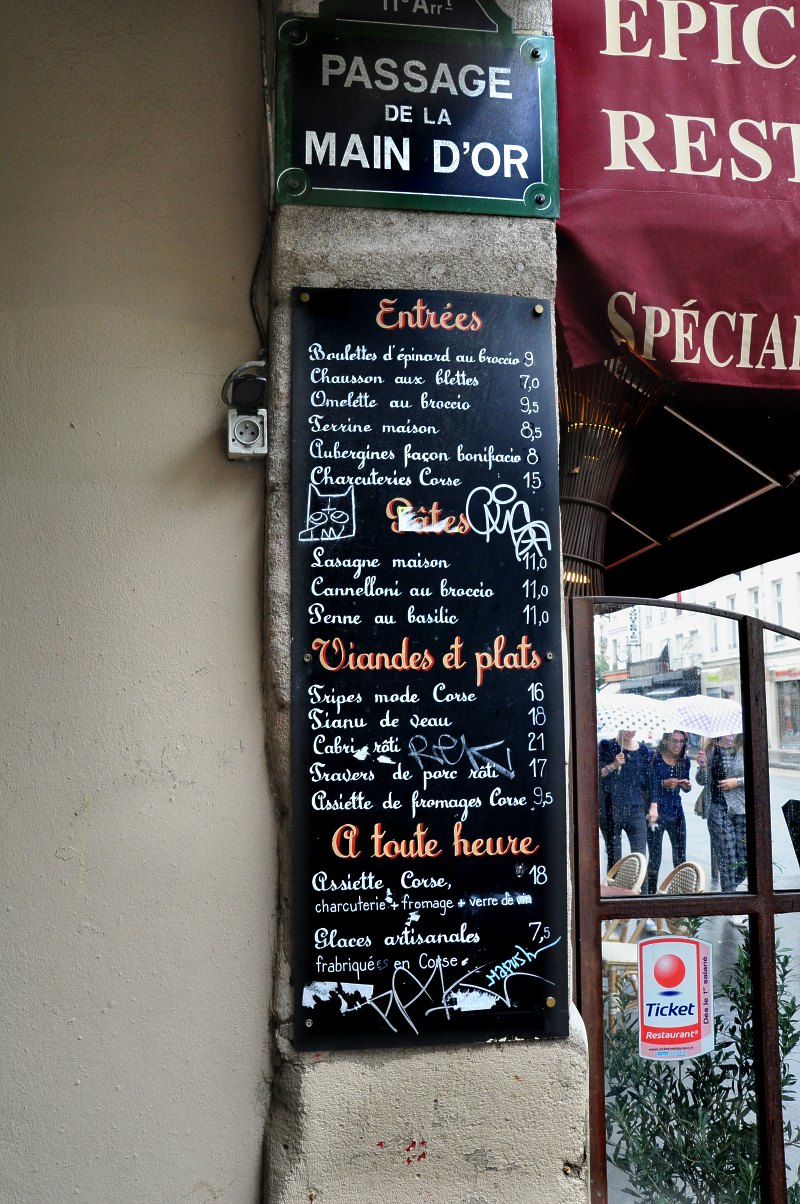 11e Arrt
PASSAGE
DE LA
MAIN D'OR
EPIC
REST
SPÉCIAL
Entrées
Boulettes d'épinard au broccio 9
Chausson aux blettes 7,0
Omelette au broccio 9,5
Terrine maison 8,5
Aubergines façon bonifacio 8
Charcuteries Corse 15
Pâtes
Lasagne maison 11,0
Cannelloni au broccio 11,0
Penne au basilic 11,0
Viandes et plats
Tripes mode Corse 16
Tianu de veau 18
Cabri rôti 21
Travers de porc rôti 17
Assiette de fromages Corse 9,5
A toute heure
Assiette Corse, 18
charcuterie + fromage + verre de vin
Glaces artisanales 7,5
frabriquées en Corse
Ticket
Restaurant
Dès le 1er salarié